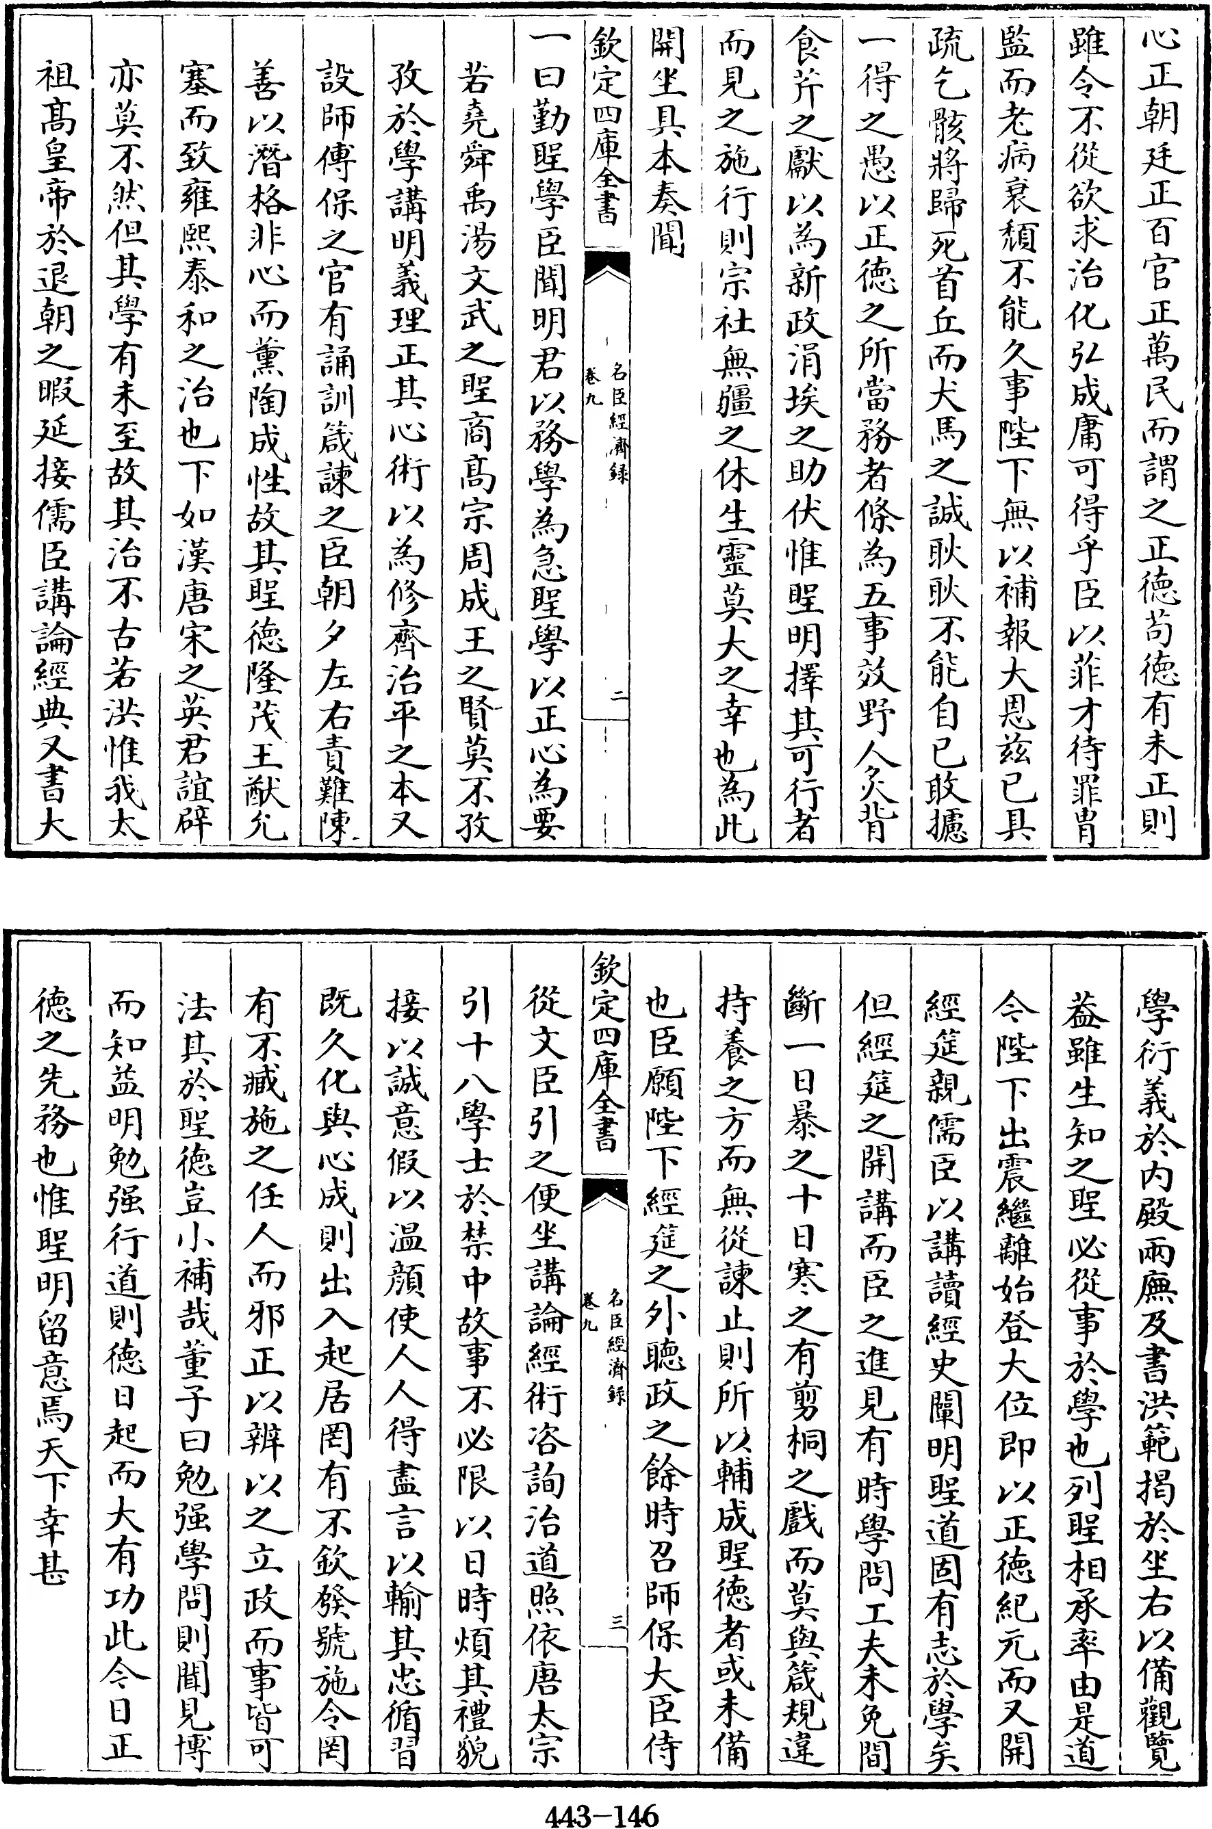 心正朝廷正百官正萬民而謂之正德茍德有未正則
雖令不從欲求治化弘成庸可得乎臣以菲才待罪胄
監而老病衰頽不能久事陛下無以補報大恩兹已具
疏乞骸將歸死首丘而犬馬之誠耿耿不能自已敢攄
一得之愚以正德之所當務者條為五事效野人炙背
食芹之獻以為新政涓埃之助伏惟聖明擇其可行者
而見之施行則宗社無疆之休生靈莫大之幸也為此
開坐具本奏聞
欽定四庫全書
名臣經濟録
卷九
二
一曰勤聖學臣聞明君以務學為急聖學以正心為要
若堯舜禹湯文武之聖商髙宗周成王之賢莫不孜
孜於學講明義理正其心術以為修齊治平之本又
設師傅保之官有誦訓箴諫之臣朝夕左右責難陳
善以潛格非心而薰陶成性故其聖德隆茂王猷允
塞而致雍熙泰和之治也下如漢唐宋之英君誼辟
亦莫不然但其學有未至故其治不古若洪惟我太
祖髙皇帝於退朝之暇延接儒臣講論經典又書大
學衍義於内殿兩廡及書洪範揭於坐右以備觀覽
葢雖生知之聖必從事於學也列聖相承率由是道
今陛下出震繼離始登大位即以正德紀元而又開
經筵親儒臣以講讀經史闡明聖道固有志於學矣
但經筵之開講而臣之進見有時學問工夫未免間
斷一日暴之十日寒之有剪桐之戲而莫與箴規違
持養之方而無從諫止則所以輔成聖德者或未備
也臣願陛下經筵之外聽政之餘時召師保大臣侍
欽定四庫全書
名臣經濟録
卷九
三
從文臣引之便坐講論經術咨詢治道照依唐太宗
引十八學士於禁中故事不必限以日時煩其禮貌
接以誠意假以温顔使人人得盡言以輸其忠循習
既久化與心成則出入起居罔有不欽發號施令罔
有不臧施之任人而邪正以辨以之立政而事皆可
法其於聖德豈小補哉董子曰勉强學問則聞見博
而知益明勉强行道則德日起而大有功此今日正
德之先務也惟聖明留意焉天下幸甚
443-146